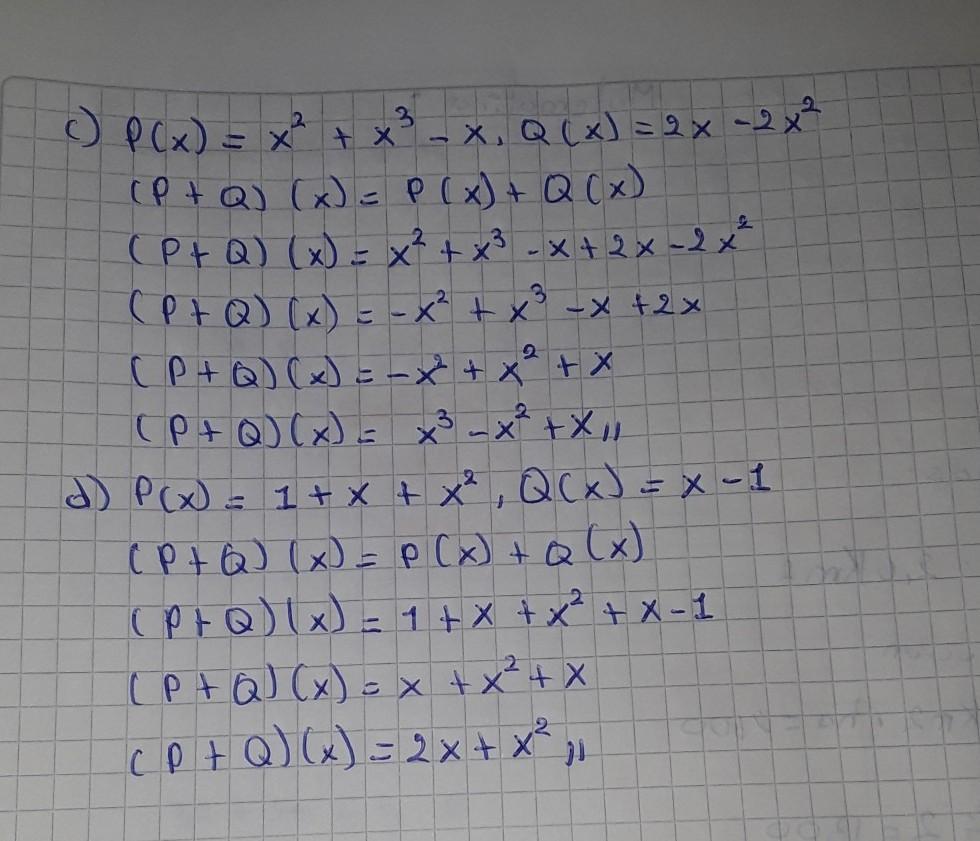 c) P(x) = x² + x³ - x, Q(x) = 2x - 2x²
(P + Q) (x) = P(x) + Q(x)
(P + Q) (x) = x² + x³ - x + 2x - 2x²
(P + Q) (x) = -x² + x³ - x + 2x
(P + Q)(x) = -x² + x² + x
(P + Q)(x) = x³ - x² + x,,
d) P(x) = 1 + x + x², Q(x) = x - 1
(P + Q) (x) = P(x) + Q(x)
(P + Q)(x) = 1 + x + x² + x - 1
(P + Q)(x) = x + x² + x
(P + Q)(x) = 2x + x²,,